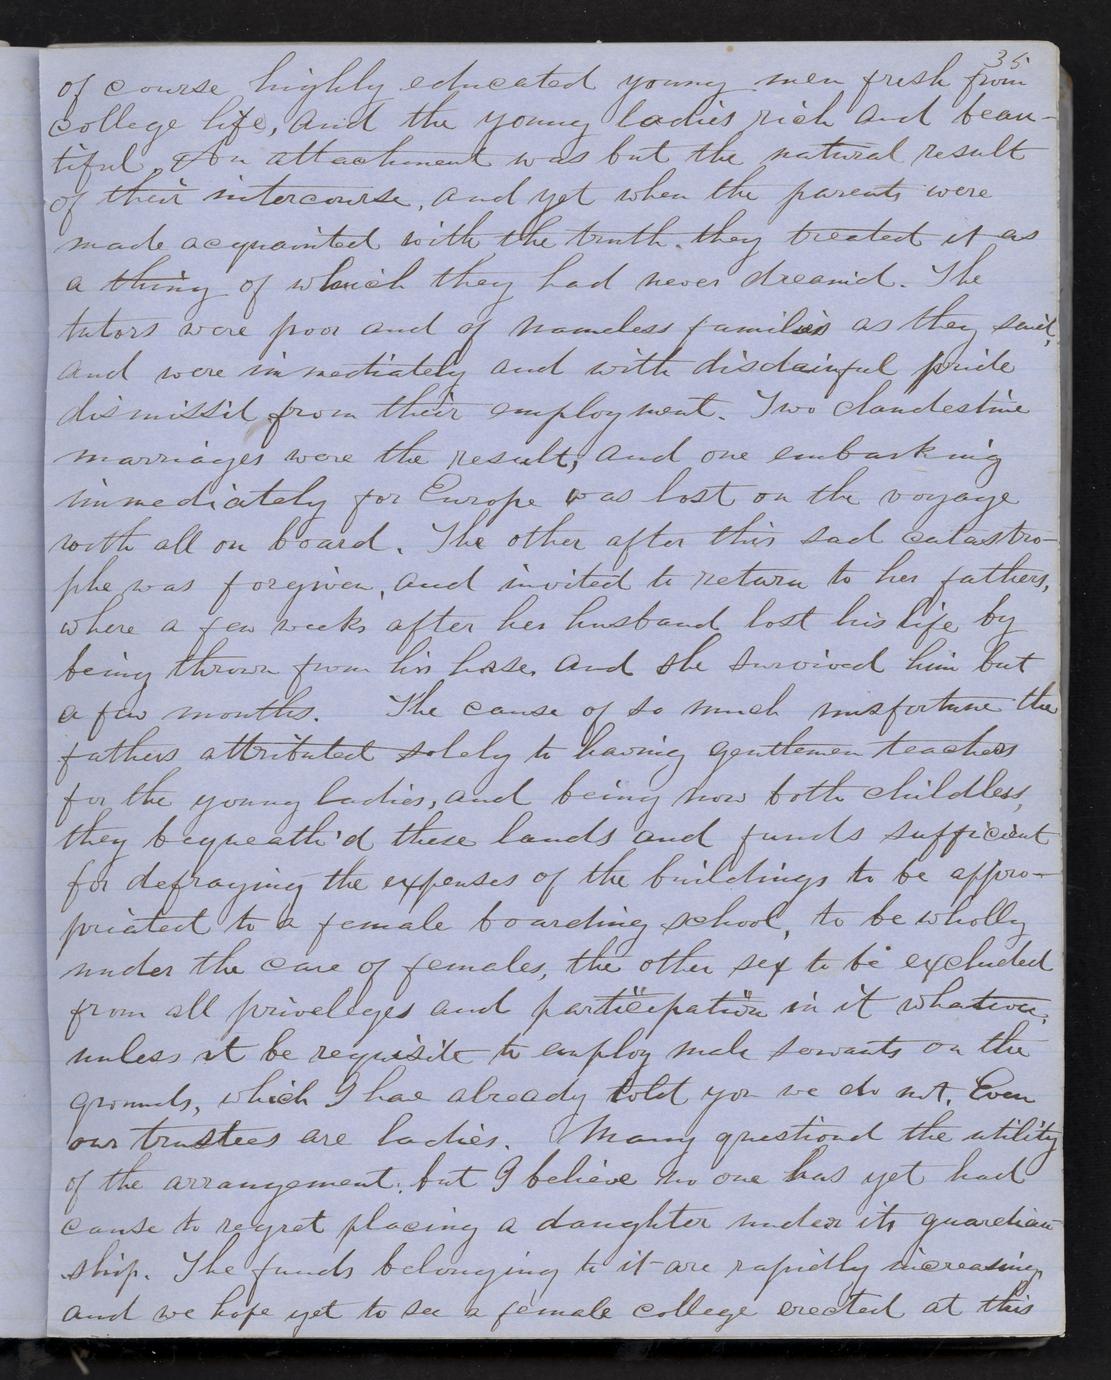 35
of course highly educated young men fresh from
college life, and the young ladies rich and beau-
tiful. An attachment was but the natural result
of their intercourse, and yet when the parents were
made acquainted with the truth. they treated it as
a thing of which they had never dream'd. The
tutors were poor and of nameless families as they said,
and were immediately and with disdainful pride
dismissed from their employment. Two clandestine
marriages were the result, and one embarking
immediately for Europe was lost on the voyage
with all on board. The other after this sad catastro-
phe was forgiven, and invited to return to her fathers,
where a few weeks after her husband lost his life by
being thrown from his horse, and she survived him but
a few months. The cause of so much misfortune the
fathers attributed solely to having gentlemen teachers
for the young ladies, and being now both childless,
they bequeath'd these lands and funds sufficient
for defraying the expenses of the buildings to be appro-
priated to a female boarding school, to be wholly
under the care of females, the other sex to be excluded
from all priveleges and participation in it whatever.
unless it be requisite to employ male servants on the
grounds, which I hae already told you we do not. Even
our trustees are ladies. Many question'd the utility
of the arrangement. but I believe no one has yet had
cause to regret placing a daughter under its guardian
ship. The funds belonging to it are rapidly increasing
and we hope yet to see a female college erected at this